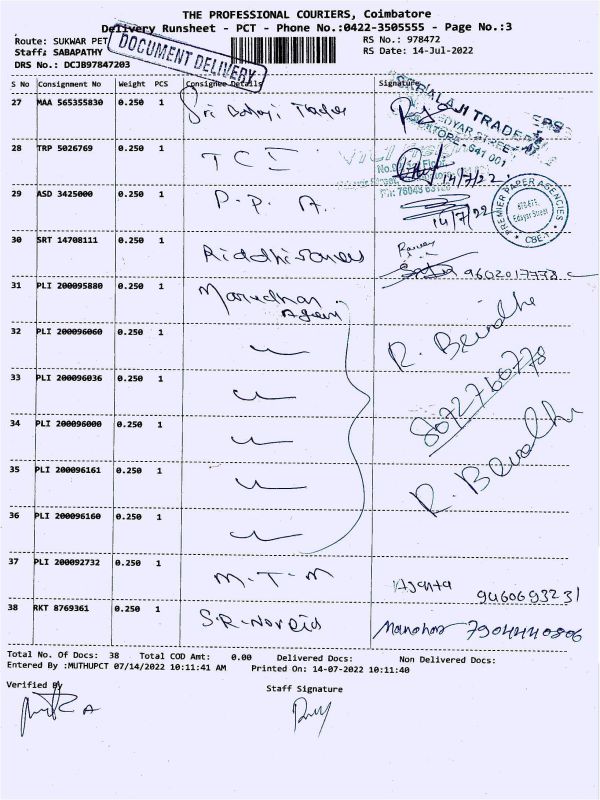 THE PROFESSIONAL COURIERS, Coimbatore
Delivery Runsheet - PCT - Phone No.:0422-3505555 - Page No.:3
Route: SUKWAR PET
RS No.: 978472
Staff: SABAPATHY
RS Date: 14-Jul-2022
DRS No.: DCJB97847203
DOCUMENT DELIVERY
S No Consignment No Weight PCS Consignee Details Signature
27 MAA 565355830 0.250 1 Sri Balaji Trades
28 TRP 5026769 0.250 1 T C I 14/7/22
29 ASD 3425000 0.250 1 P. P. A. 14/7/22
PREMIER PAPER AGENCIES
Edayar Street
CBE-1
30 SRT 14708111 0.250 1 Riddhi 9602017778
31 PLI 200095880 0.250 1 Marudhar Agen
32 PLI 200096060 0.250 1
33 PLI 200096036 0.250 1 8072760778
34 PLI 200096000 0.250 1
35 PLI 200096161 0.250 1
36 PLI 200096160 0.250 1
37 PLI 200092732 0.250 1 M-T-M Ajanta 9460693231
38 RKT 8769361 0.250 1 S.R. Manohar 7904440806
Total No. Of Docs: 38 Total COD Amt: 0.00 Delivered Docs: Non Delivered Docs:
Entered By :MUTHUPCT 07/14/2022 10:11:41 AM Printed On: 14-07-2022 10:11:40
Verified By
Staff Signature